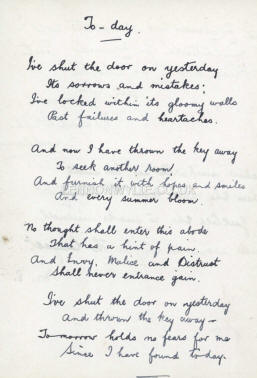 To-day.
I've shut the door on yesterday
Its sorrows and mistakes;
I've locked within its gloomy walls
Past failures and heartaches.
And now I have thrown the key away
To seek another room
And furnish it with hopes and smiles
And every summer bloom.
No thought shall enter this abode
That has a hint of pain.
And Envy, Malice and Distrust
Shall never entrance gain.
I've shut the door on yesterday
And thrown the key away –
To-morrow holds no fears for me
Since I have found to-day.